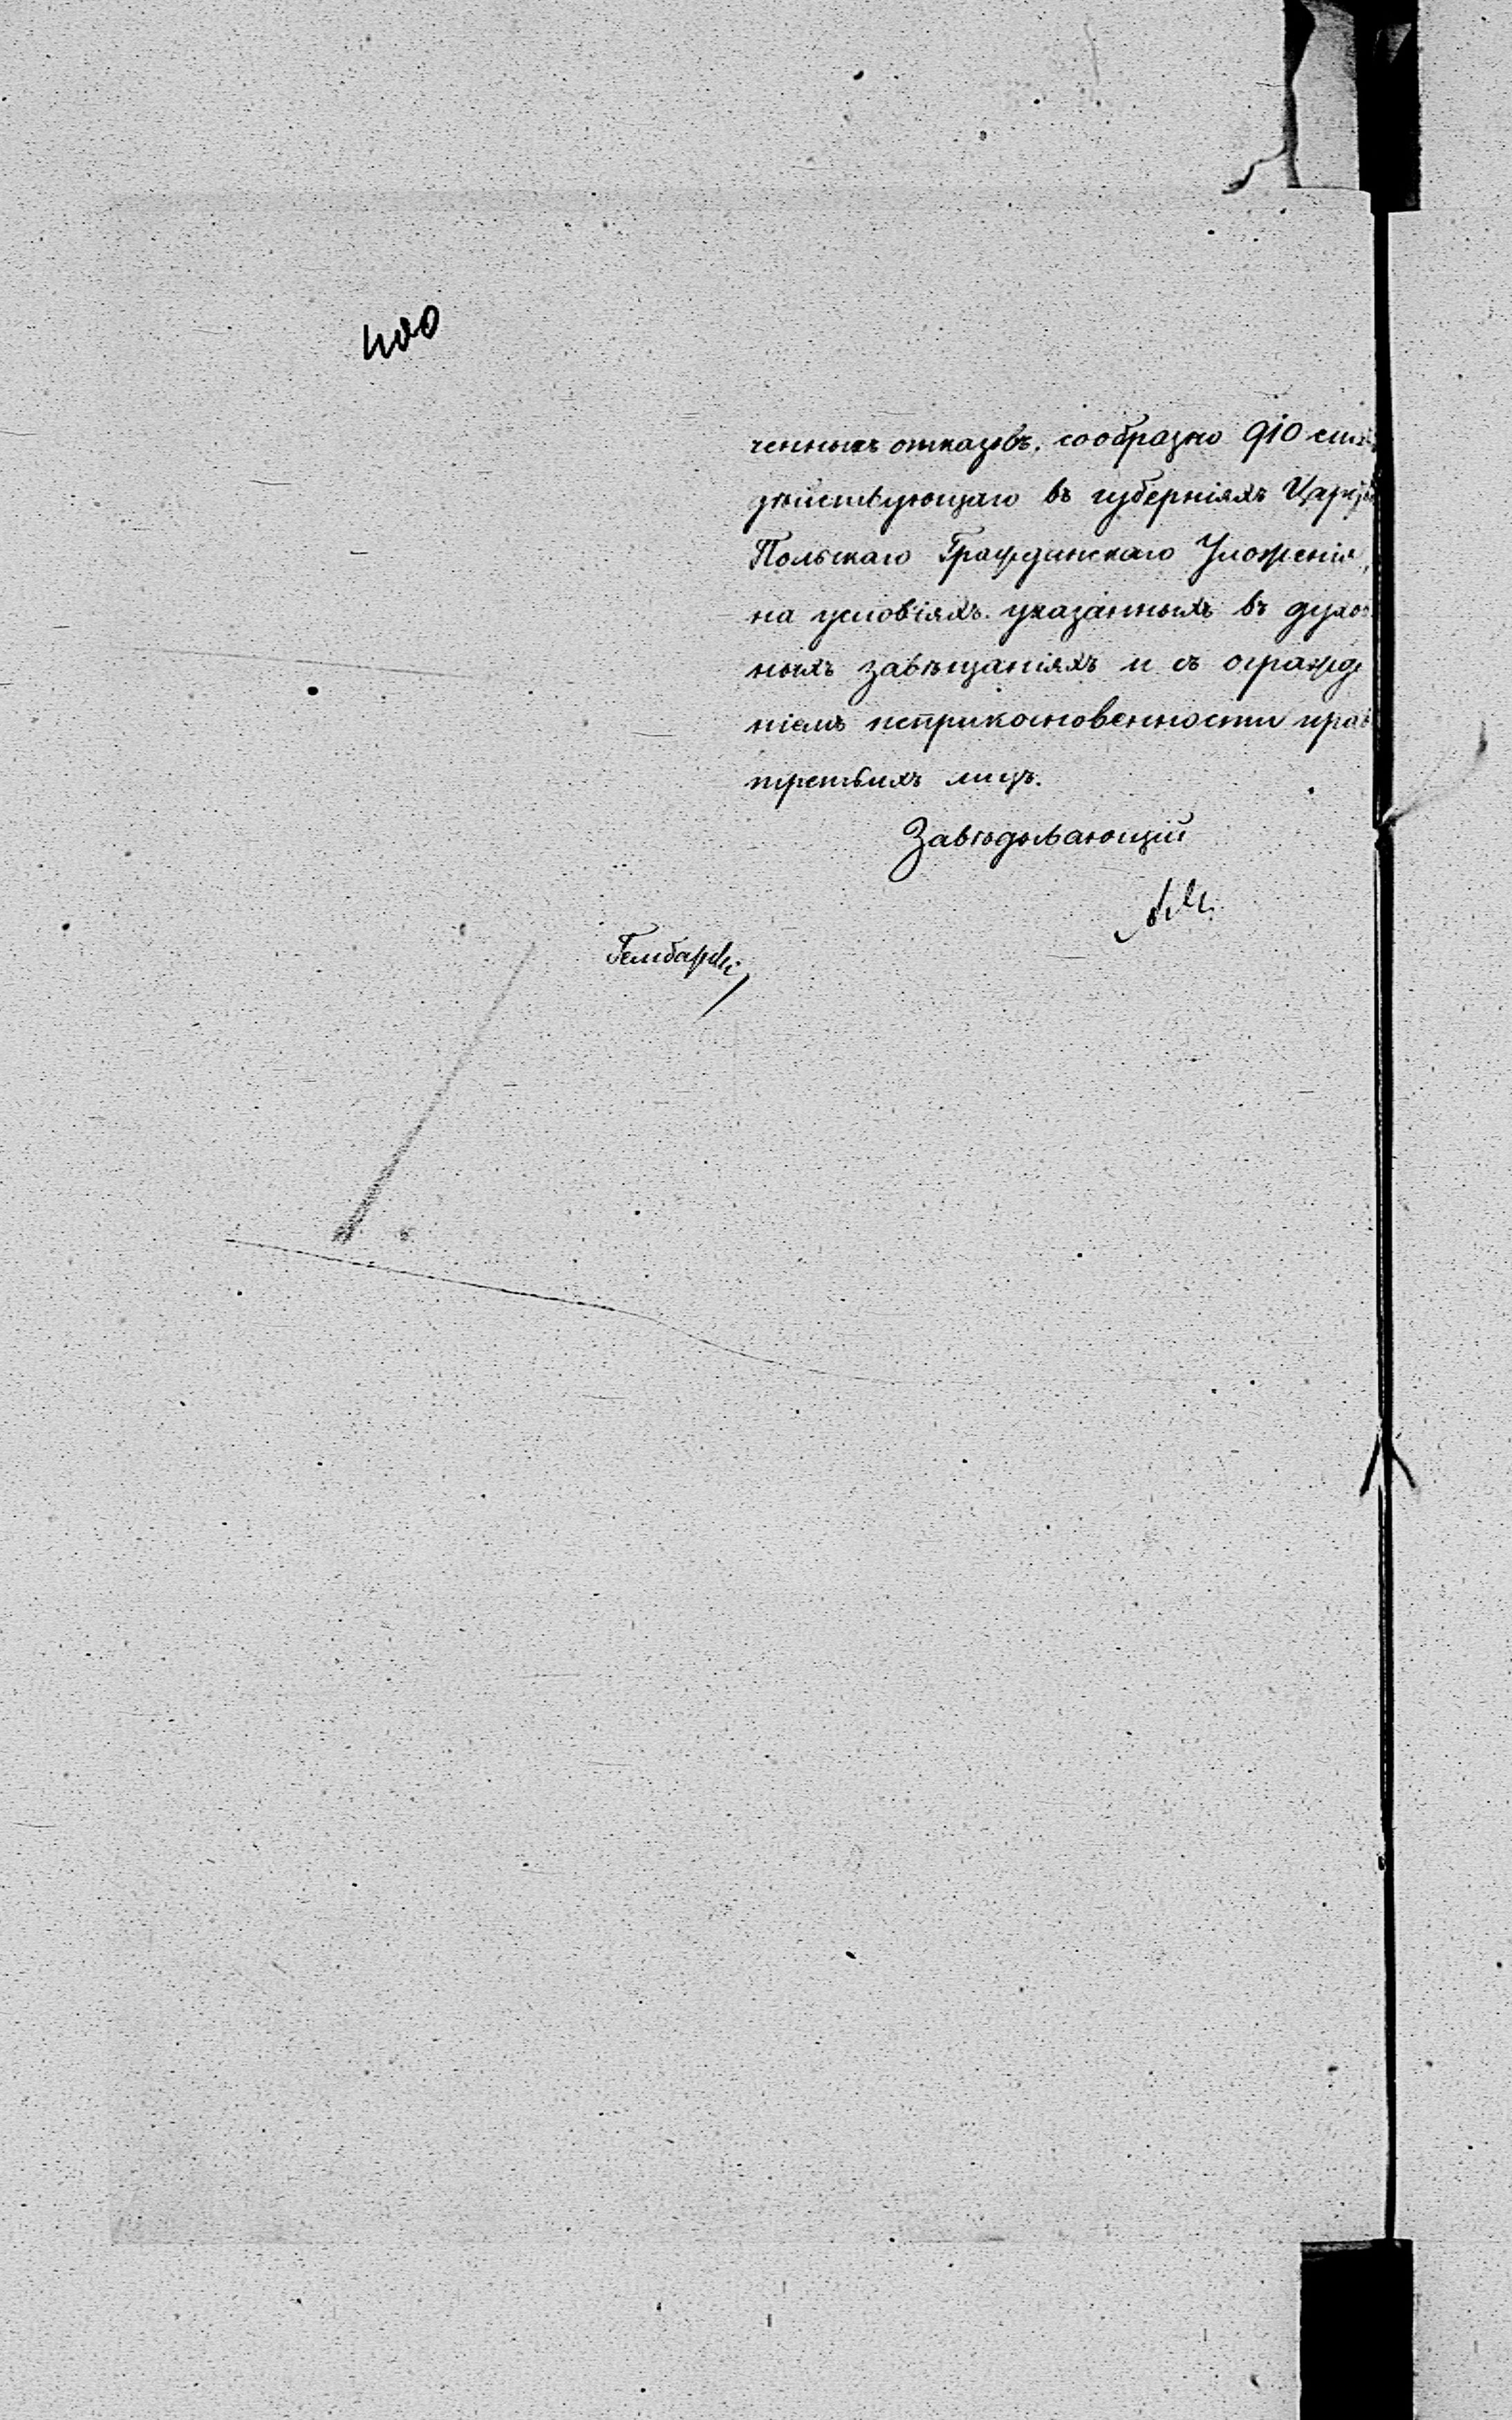 ченныхъ отказовъ, сообразно 910 ст.
дѣйствующаго въ губерніяхъ Царс
Польскаго Гражданскаго Уложенія,
на условіяхъ указанныхъ въ духов
ныхъ завѣщаніяхъ и съ огражде
ніемъ неприкосновенности прав
третьихъ лицъ.
Завѣдывающій